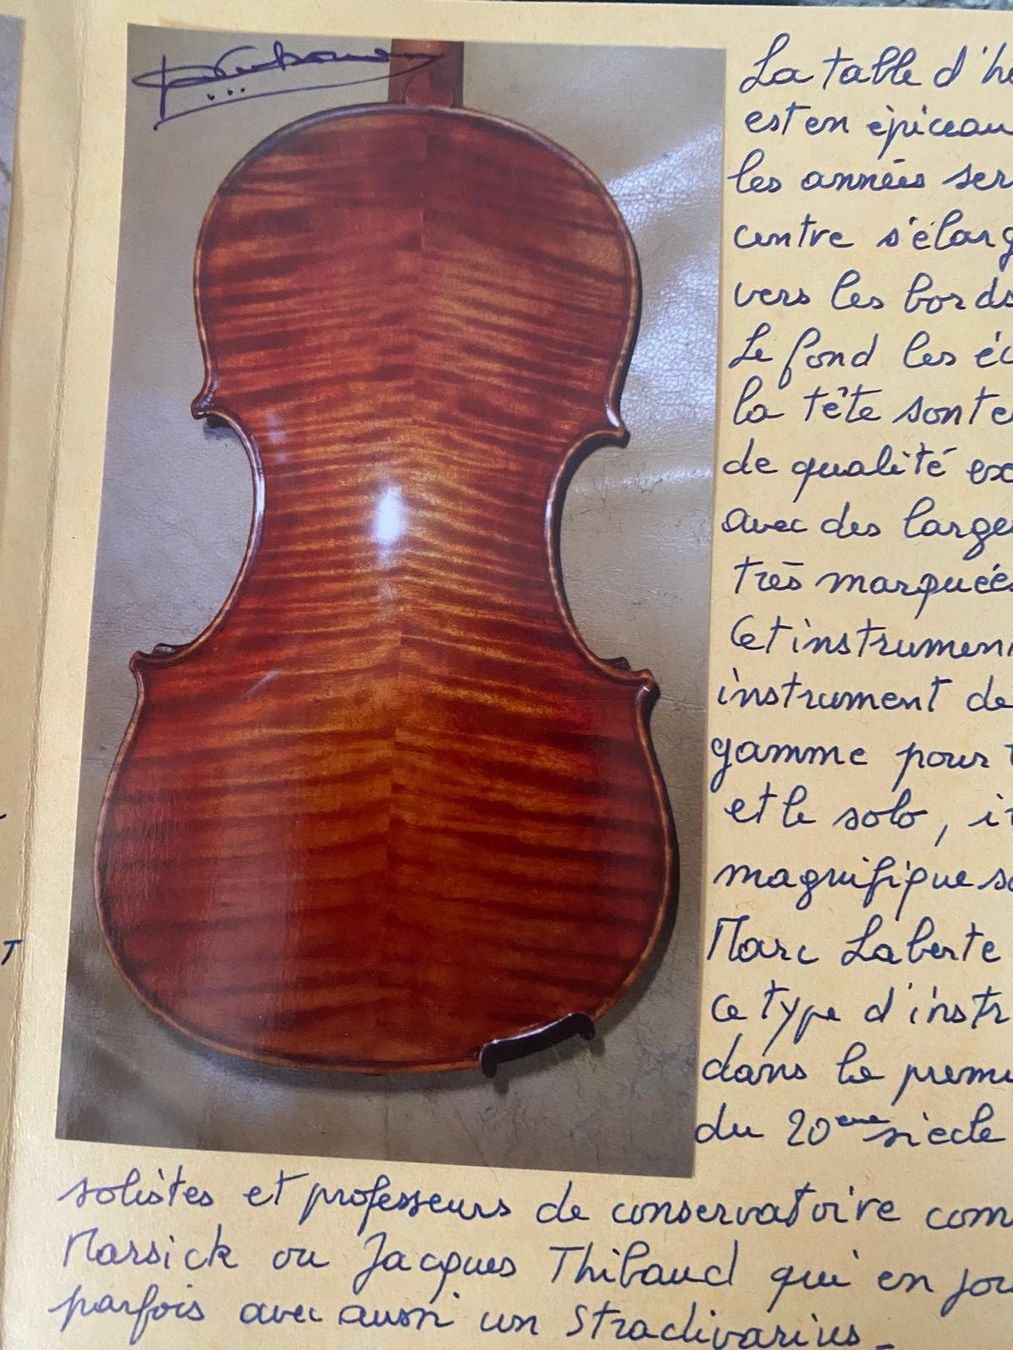 La table d'
est en épiceau
les années ser
centre s'élarg
vers les bords
Le fond les éc
la tête sont e
de qualité exc
avec des large
très marquées
Cet instrumen
instrument de
gamme pour t
et le solo, i
magnifique so
Marc Laberte
ce type d'instr
dans le premi
du 20ème siècle
solistes et professeurs de conservatoire com
Marsick ou Jacques Thibaud qui en jou
parfois avec aussi un Stradivarius.
T